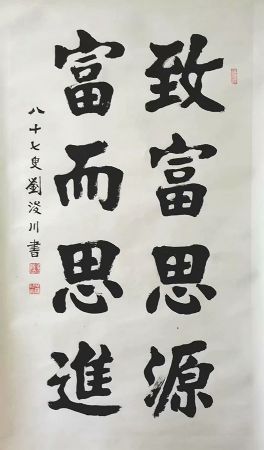 致富思源
富而思進
八十七叟劉浚川書